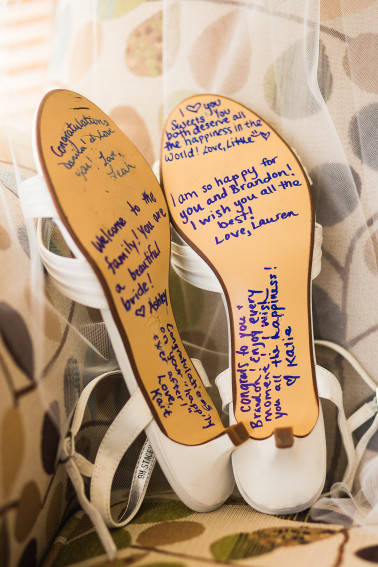 Congratulations
I love
you! Love,
Leah
Welcome to the
family! You are
a beautiful
bride!
Congratulations
Love,
♡ you
Sweets! You
both deserve all
the happiness in the
World! Love, Little
I am so happy for
you and Brandon!
I wish you all the
best!
Love, Lauren
Congrats to you +
Brandon enjoy every
moment I wish
you all the happiness!
Katie
BY STACEY